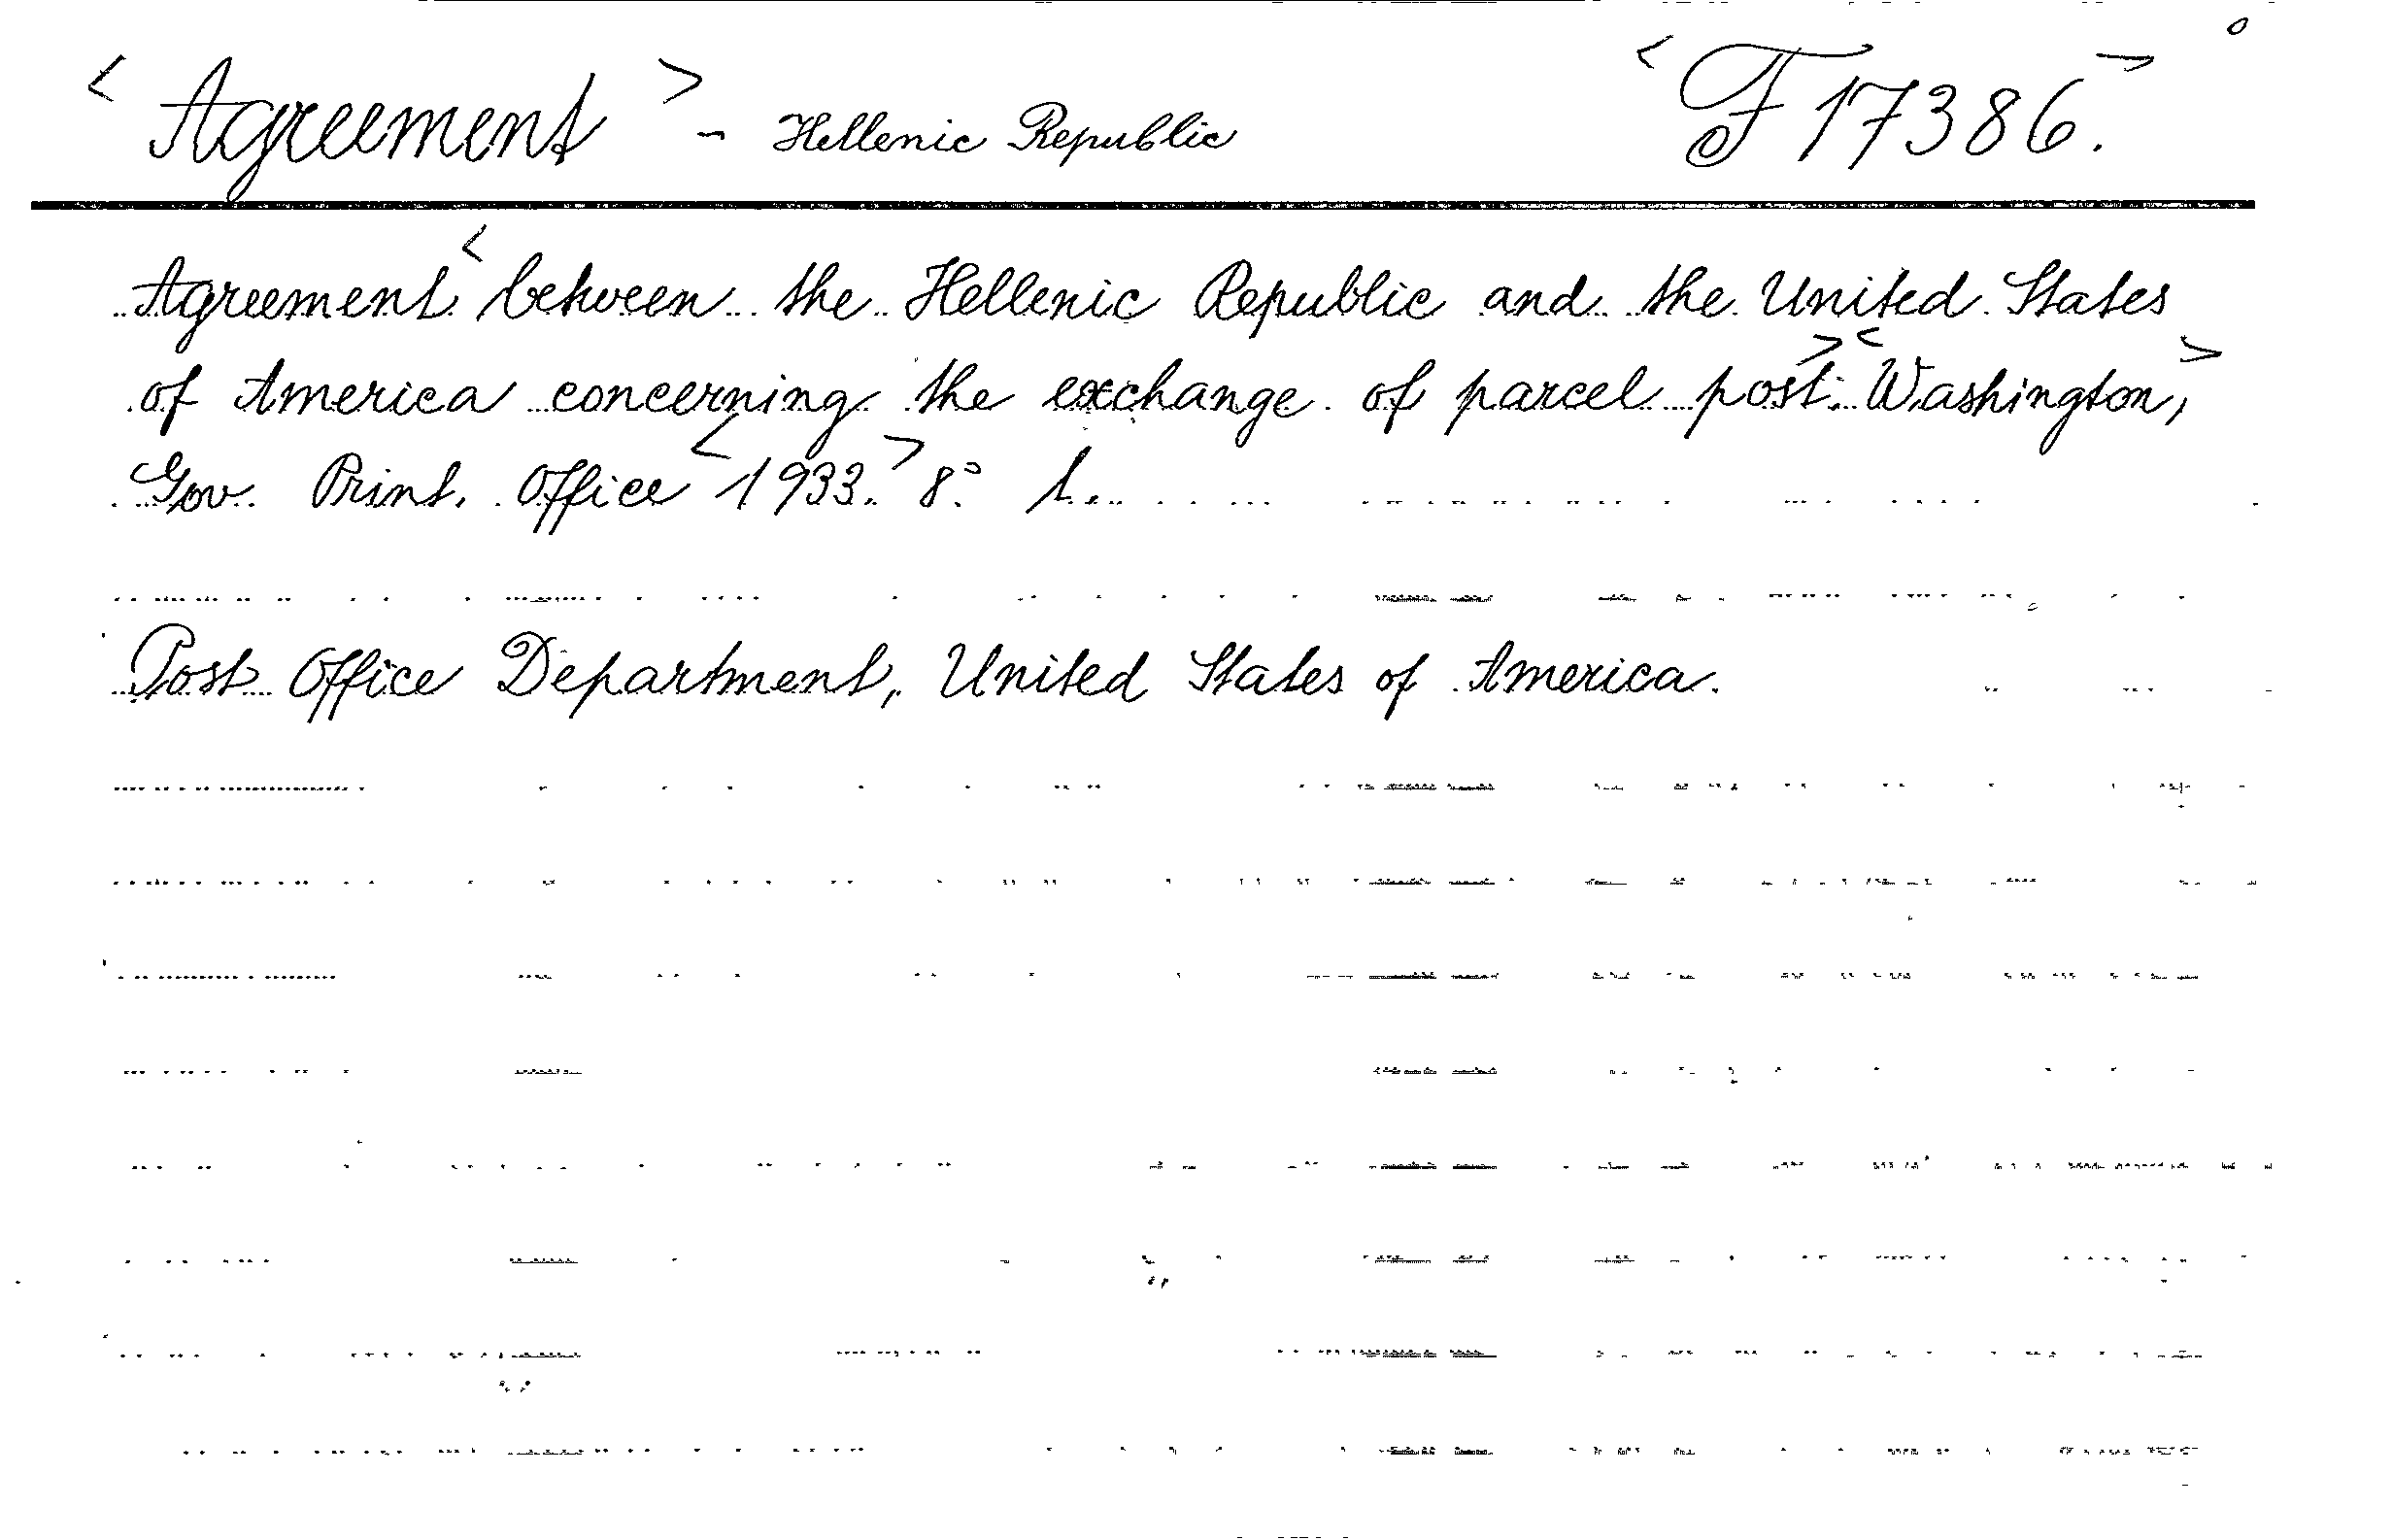 <Agreement> - Hellenic Republic <F 17386.>
Agreement <between the Hellenic Republic and the United States
of America concerning the exchange of parcel post.> <Washington,>
Gov. Print. Office <1933.> 8° 1.
Post Office Department, United States of America.